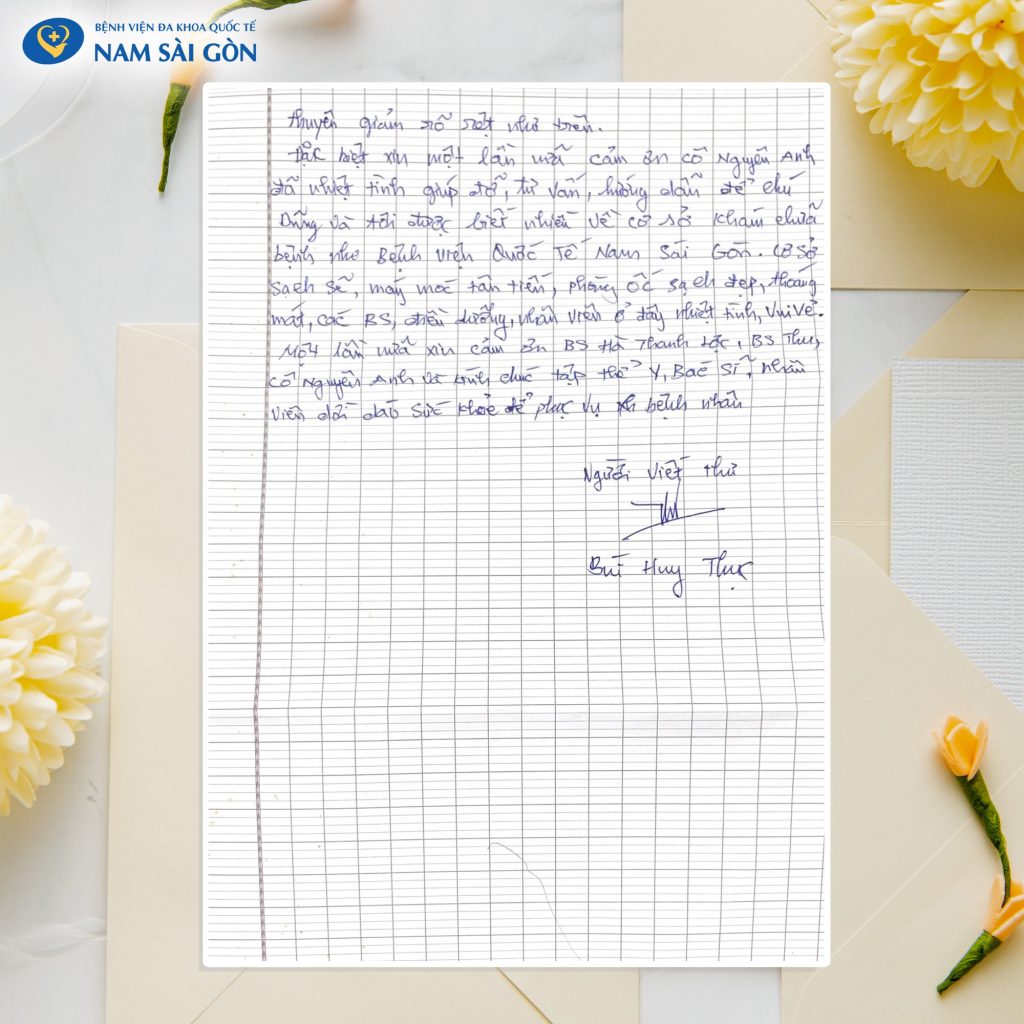 BỆNH VIỆN ĐA KHOA QUỐC TẾ
NAM SÀI GÒN
thuyên giảm rõ rệt như trên.
Đặc biệt xin một lần nữa cảm ơn cô Nguyên Anh
đã nhiệt tình giúp đỡ, tư vấn, hướng dẫn để chú
Dũng và tôi được biết nhiều về cơ sở khám chữa
bệnh như Bệnh viện Quốc Tế Nam Sài Gòn. Cơ Sở
Sạch sẽ, máy móc tân tiến, phòng ốc sạch đẹp, thoáng
mát, các BS, điều dưỡng, nhân viên ở đây nhiệt tình, Vui Vẻ.
Một lần nữa xin cảm ơn BS Hà Thanh Lộc, BS Thư,
cô Nguyên Anh và kính chúc tập thể Y, Bác Sĩ, nhân
viên dồi dào Sức khỏe để phục vụ bệnh nhân
Người Viết thư
Bùi Huy Thục